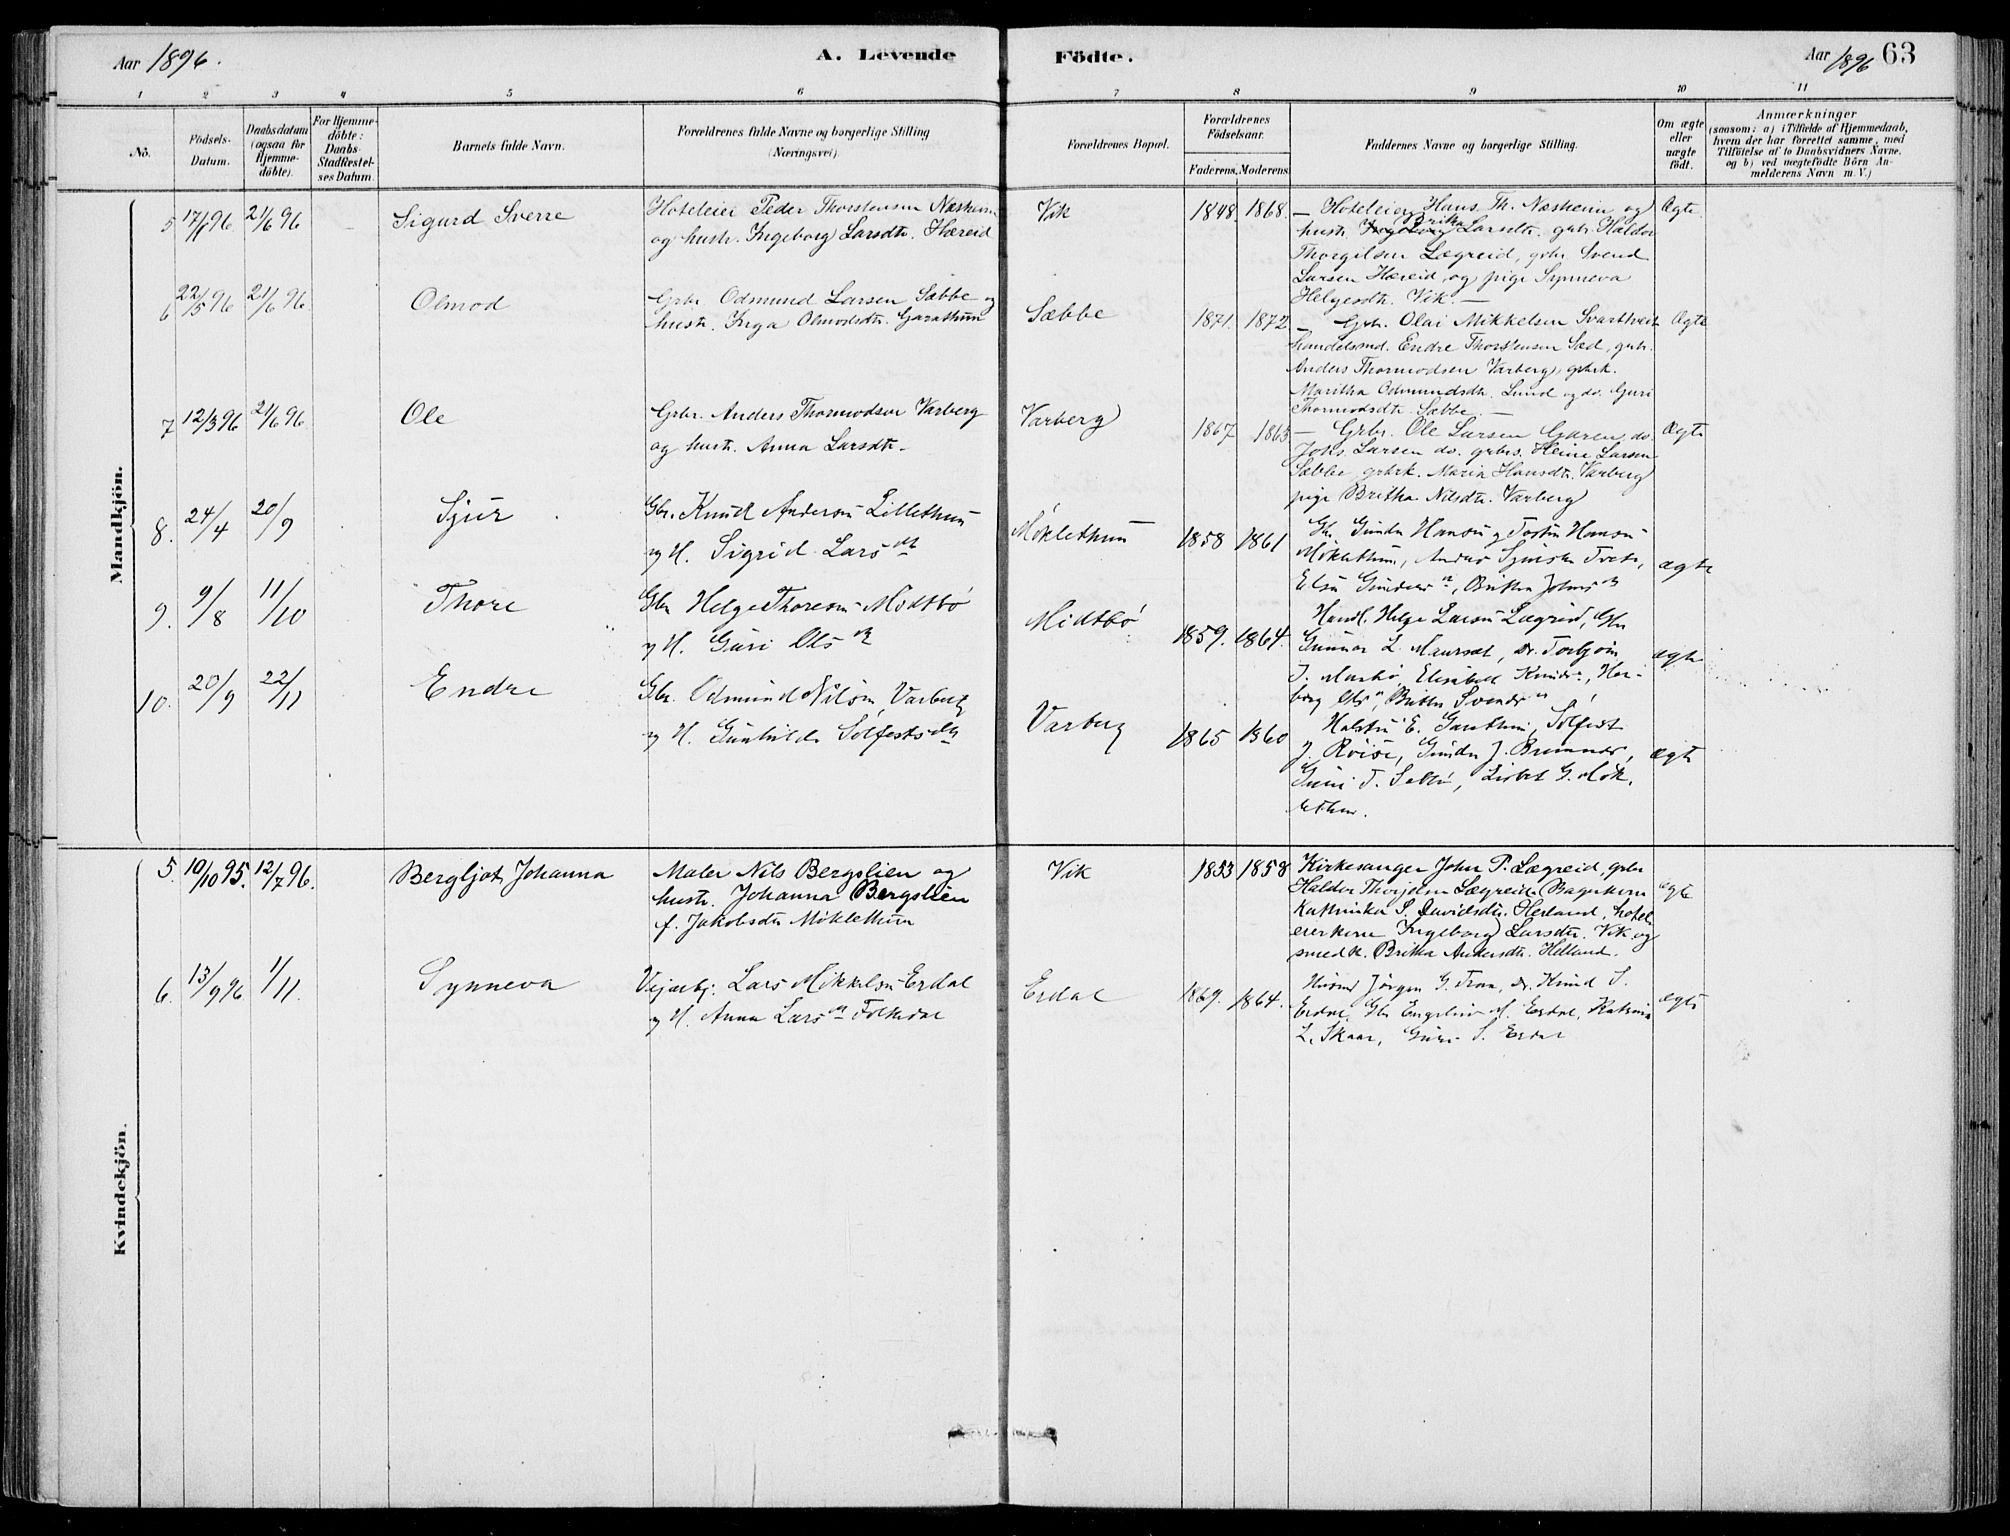 Aar 1896.
A. Levende Födte.
Aar 1896
63
1 2 3 4 5 6 7 8 9 10 11
No.
Födsels-
Datum.
Daabsdatum
(ogsaa for
Hjemme-
döbte).
For Hjemme-
döbte:
Daabs-
Stadfæstel-
ses Datum.
Barnets fulde Navn.
Forældrenes fulde Navne og borgerlige Stilling
(Næringsvei).
Forældrenes Bopæl.
Forældrenes
Födselsaar.
Faderens. Moderens.
Faddernes Navne og borgerlige Stilling.
Om ægte
eller
uægte
födt.
Anmærkninger
(saasom: a) i Tilfælde af Hjemmedaab,
hvem der har forrettet samme, med
Tilföielse af to Daabsvidners Navne.
og b) ved uægtefödte Börn An-
melderens Navn m. V.)
Mandkjön.
5 17/1 96 21/6 96 Sigurd Sverre
Hoteleier Peder Thorstensen Næsheim
og hustr. Ingeborg Larsdtr. Hæreid
Vik 1848. 1868.
— Hoteleier Hans Th. Næsheim og
Britha
hustr. Ingeborg Larsdtr. gbr. Haldor
Thorgilsen Lægreid, gbr. Svend
Larsen Hæreid, og pige Synneva
Helgesdtr. Vik. —
Ægte.
6 22/5 96 21/6 96. Olmod
Grbr. Odmund Larsen Sæbbe og
hustr. Inga Olmodsdtr. Garathun
Sæbbe 1871. 1872
— Grbr. Olai Mikkelsen Svartveit
handelsmd. Endre Thorstensen Sæd, grbr.
Anders Thormodsen Varberg, gbrk.
Maritha Odmundsdtr. Lund og do. Guri
Thormodsdtr. Sæbbe. —
Ægte
7 12/3 96 21/6 96. Ole
Grbr. Anders Thormodsen Varberg
og hustr. Anna Larsdtr.
Varberg 1867 1863
— Grbr. Ole Larsen Garen, do.
Johs. Larsen do. grbrs. Heine Larsen
Sæbbe, grbrk. Maria Hansdtr. Varberg
pige Britha Nilsdtr. Varberg
Ægte
8. 24/4 20/9 Sjur
Gbr. Knud Andersen Lillethun
og H. Sigrid Larsdtr
Möklethun 1858 1861
Gbr. Gunder Hansen og Torstn Hansen
Möklethun, Anders Sjursen Tveit,
Elsa Gundersdtr, Britha Johnsdtr
ægte
9. 9/8 11/10 Thore
Gbr. Helge Thoresen Midtbö
og H. Guri Olsdtr
Midtbö 1859. 1864.
Handl. Helge Larsen Lægreid, Gbr
Gunnar L. Maursæt, Do. Torbjörn
T. Maurbö, Elisabet Knudsdtr, Her-
borg Olsdtr, Britha Svendsdtr
ægte
10. 20/9 22/11 Endre
Gbr. Odmund Nilsen Varberg
og H. Gunhilda Solfestsdtr
Varberg 1865 1860
Halsten E. Garathun, Solfest
J. Röise, Gunder J. Brimnes,
Guri T. Sæbbe, Lisbet G. Mök-
lethun.
ægte
Kvindekjön.
5. 10/10 95. 12/7 96. Bergljot Johanna
Maler Nils Bergslien og
hustr. Johanna Bergslien
f. Jakobsdtr Möklethun
Vik 1853 1858
Kirkesanger John P. Lægreid, grbr
Haldor Thorjelsen Lægreid, Bagerkone
Kathrinka S. Davidsdtr. Herland, hotel-
eierkone Ingeborg Larsdtr. Vik og
smedk. Britha Andersdtr. Helland.
ægte
6. 13/9 96 1/11. Synneva
Vejarbj. Lars Mikkelsen Erdal
og H. Anna Larsdtr Folkedal
Erdal 1869. 1864.
Husmd Jörgen G. Traa, Do. Knud S.
Erdal, Gbr Engeline M. Erdal, Katrina
L. Skaar, Guro S. Erdal
ægte